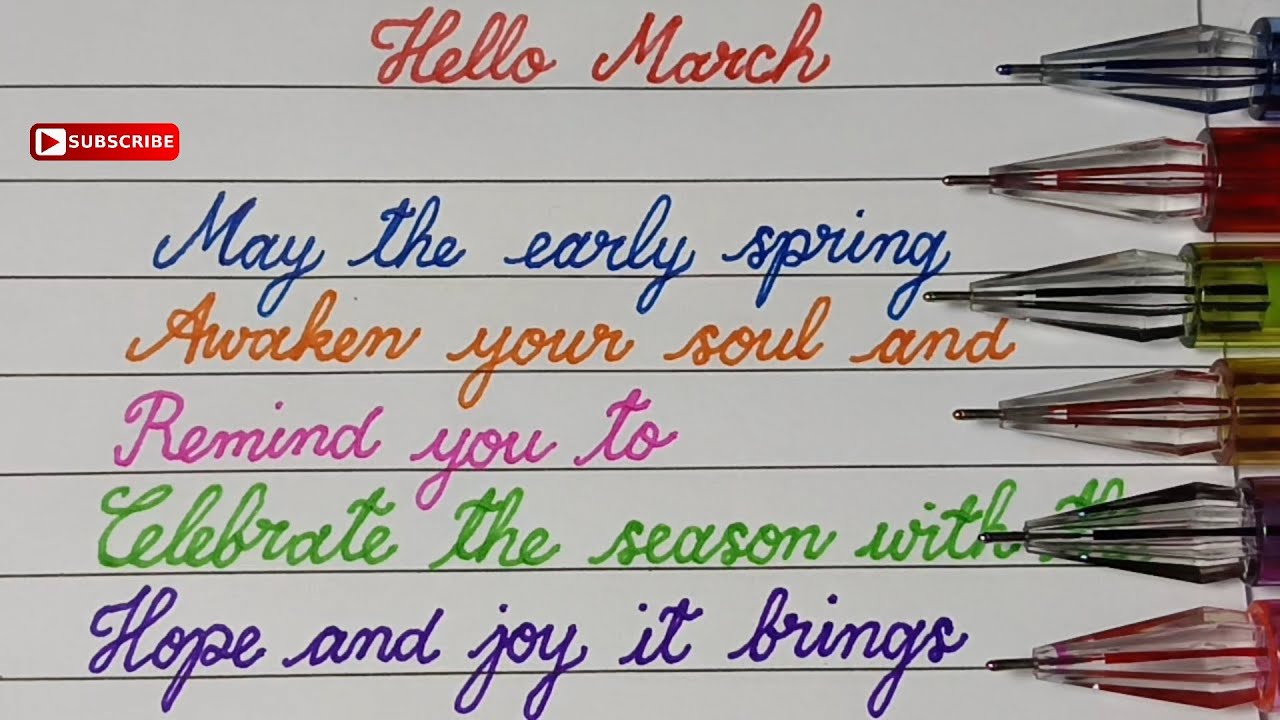 Hello March
SUBSCRIBE
May the early spring
Awaken your soul and
Remind you to
Celebrate the season with
Hope and joy it brings